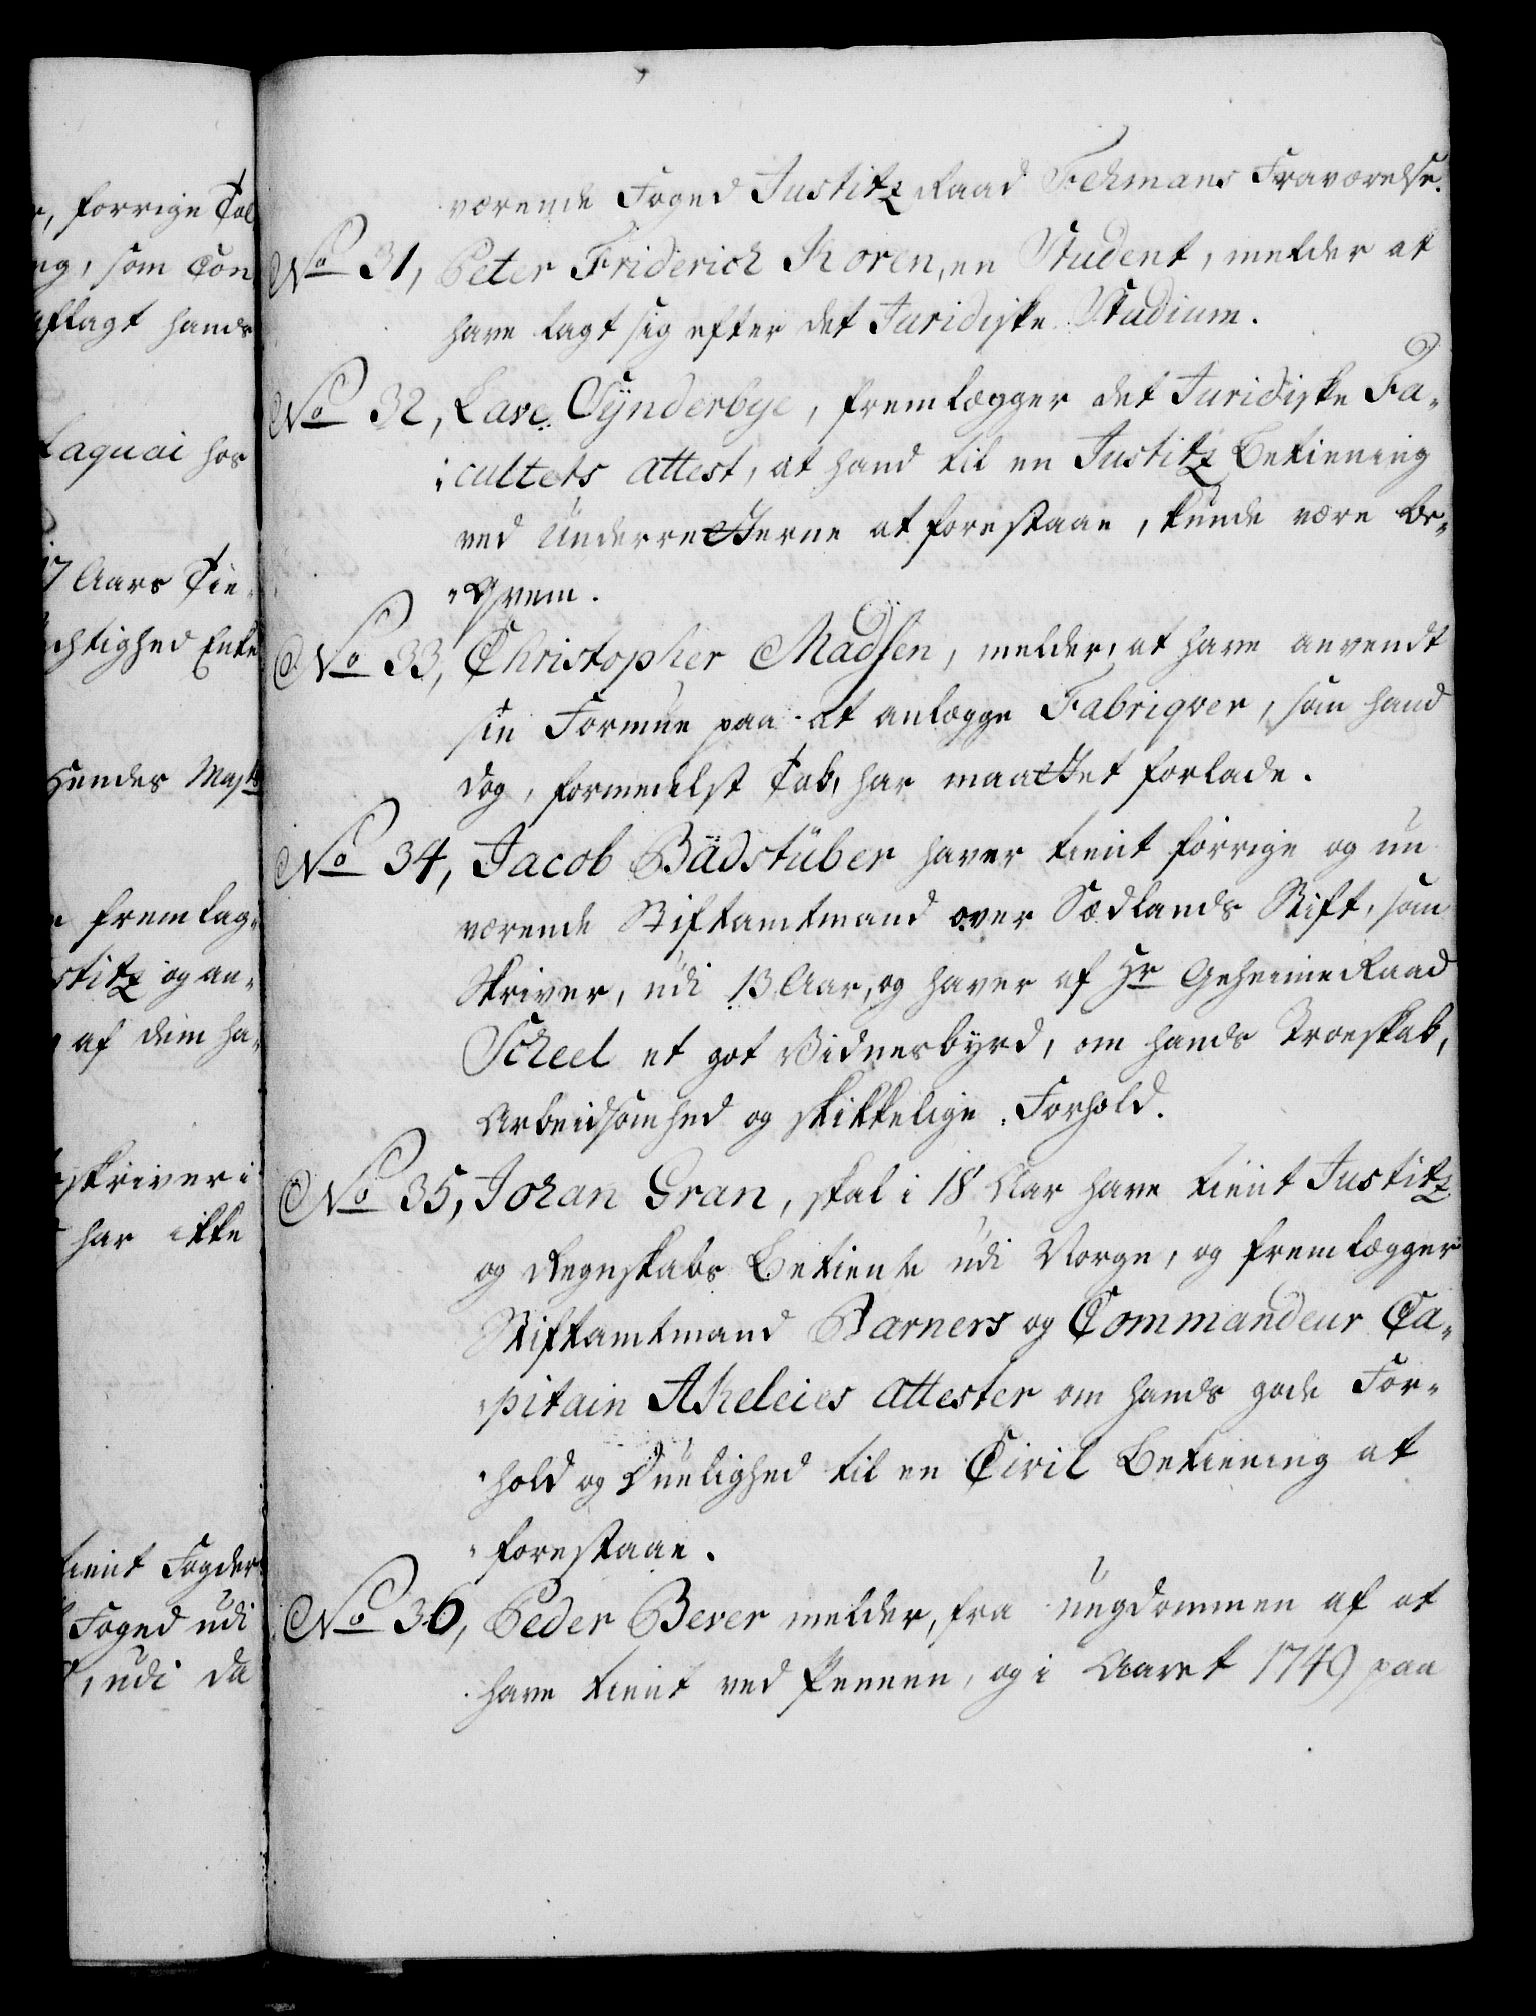 r, forrige Tol
ng, som Con
aflagt hands
Laquai hos
17 Aars Tie-
chtighed Enke
Hendes Mayts
fremlag-
stitz og an-
af dem ha-
skriver i
har ikke
tient Fogder
Foged udi
, udi da
værende Foged Justitz Raad Fehmans Fraværelse.
No 31, Peter Friderich Koren, en Student, melder at
have lagt sig efter det Juridiske Studium.
No 32, Lave Synderbye, fremlægger det Juridiske Fa-
cultets attest, at hand til en Justitz Betiening
ved Underretterne at forestaae, kunde være be-
qvem.
No 33, Christopher Madsen, melder, at have anvendt
sin Formue paa at anlægge Fabriqver, som hand
dog, formedelst Tab, har maattet forlade.
No 34, Jacob Bädstüber haver tient forrige og nu
værende Stiftamtmand over Siælands Stift, som
Skriver, udi 13 Aar, og haver af Hr Geheime Raad
Scheel et got Vidnesbyrd, om hands Troeskab,
Arbeidsomhed og skikkelige Forhold.
No 35, Johan Gran, skal i 18 Aar have tient Justitz
og Regnskabs Betiente udi Norge, og fremlægger
Stiftamtmand Barners og Commandeur Ca-
pitain Akeleies attester om hands gode For-
hold og Duelighed til en Civil Betiening at
forestaae.
No 36, Peder Bever melder, fra Ungdommen af at
have tient ved Pennen, og i Aaret 1749 paa